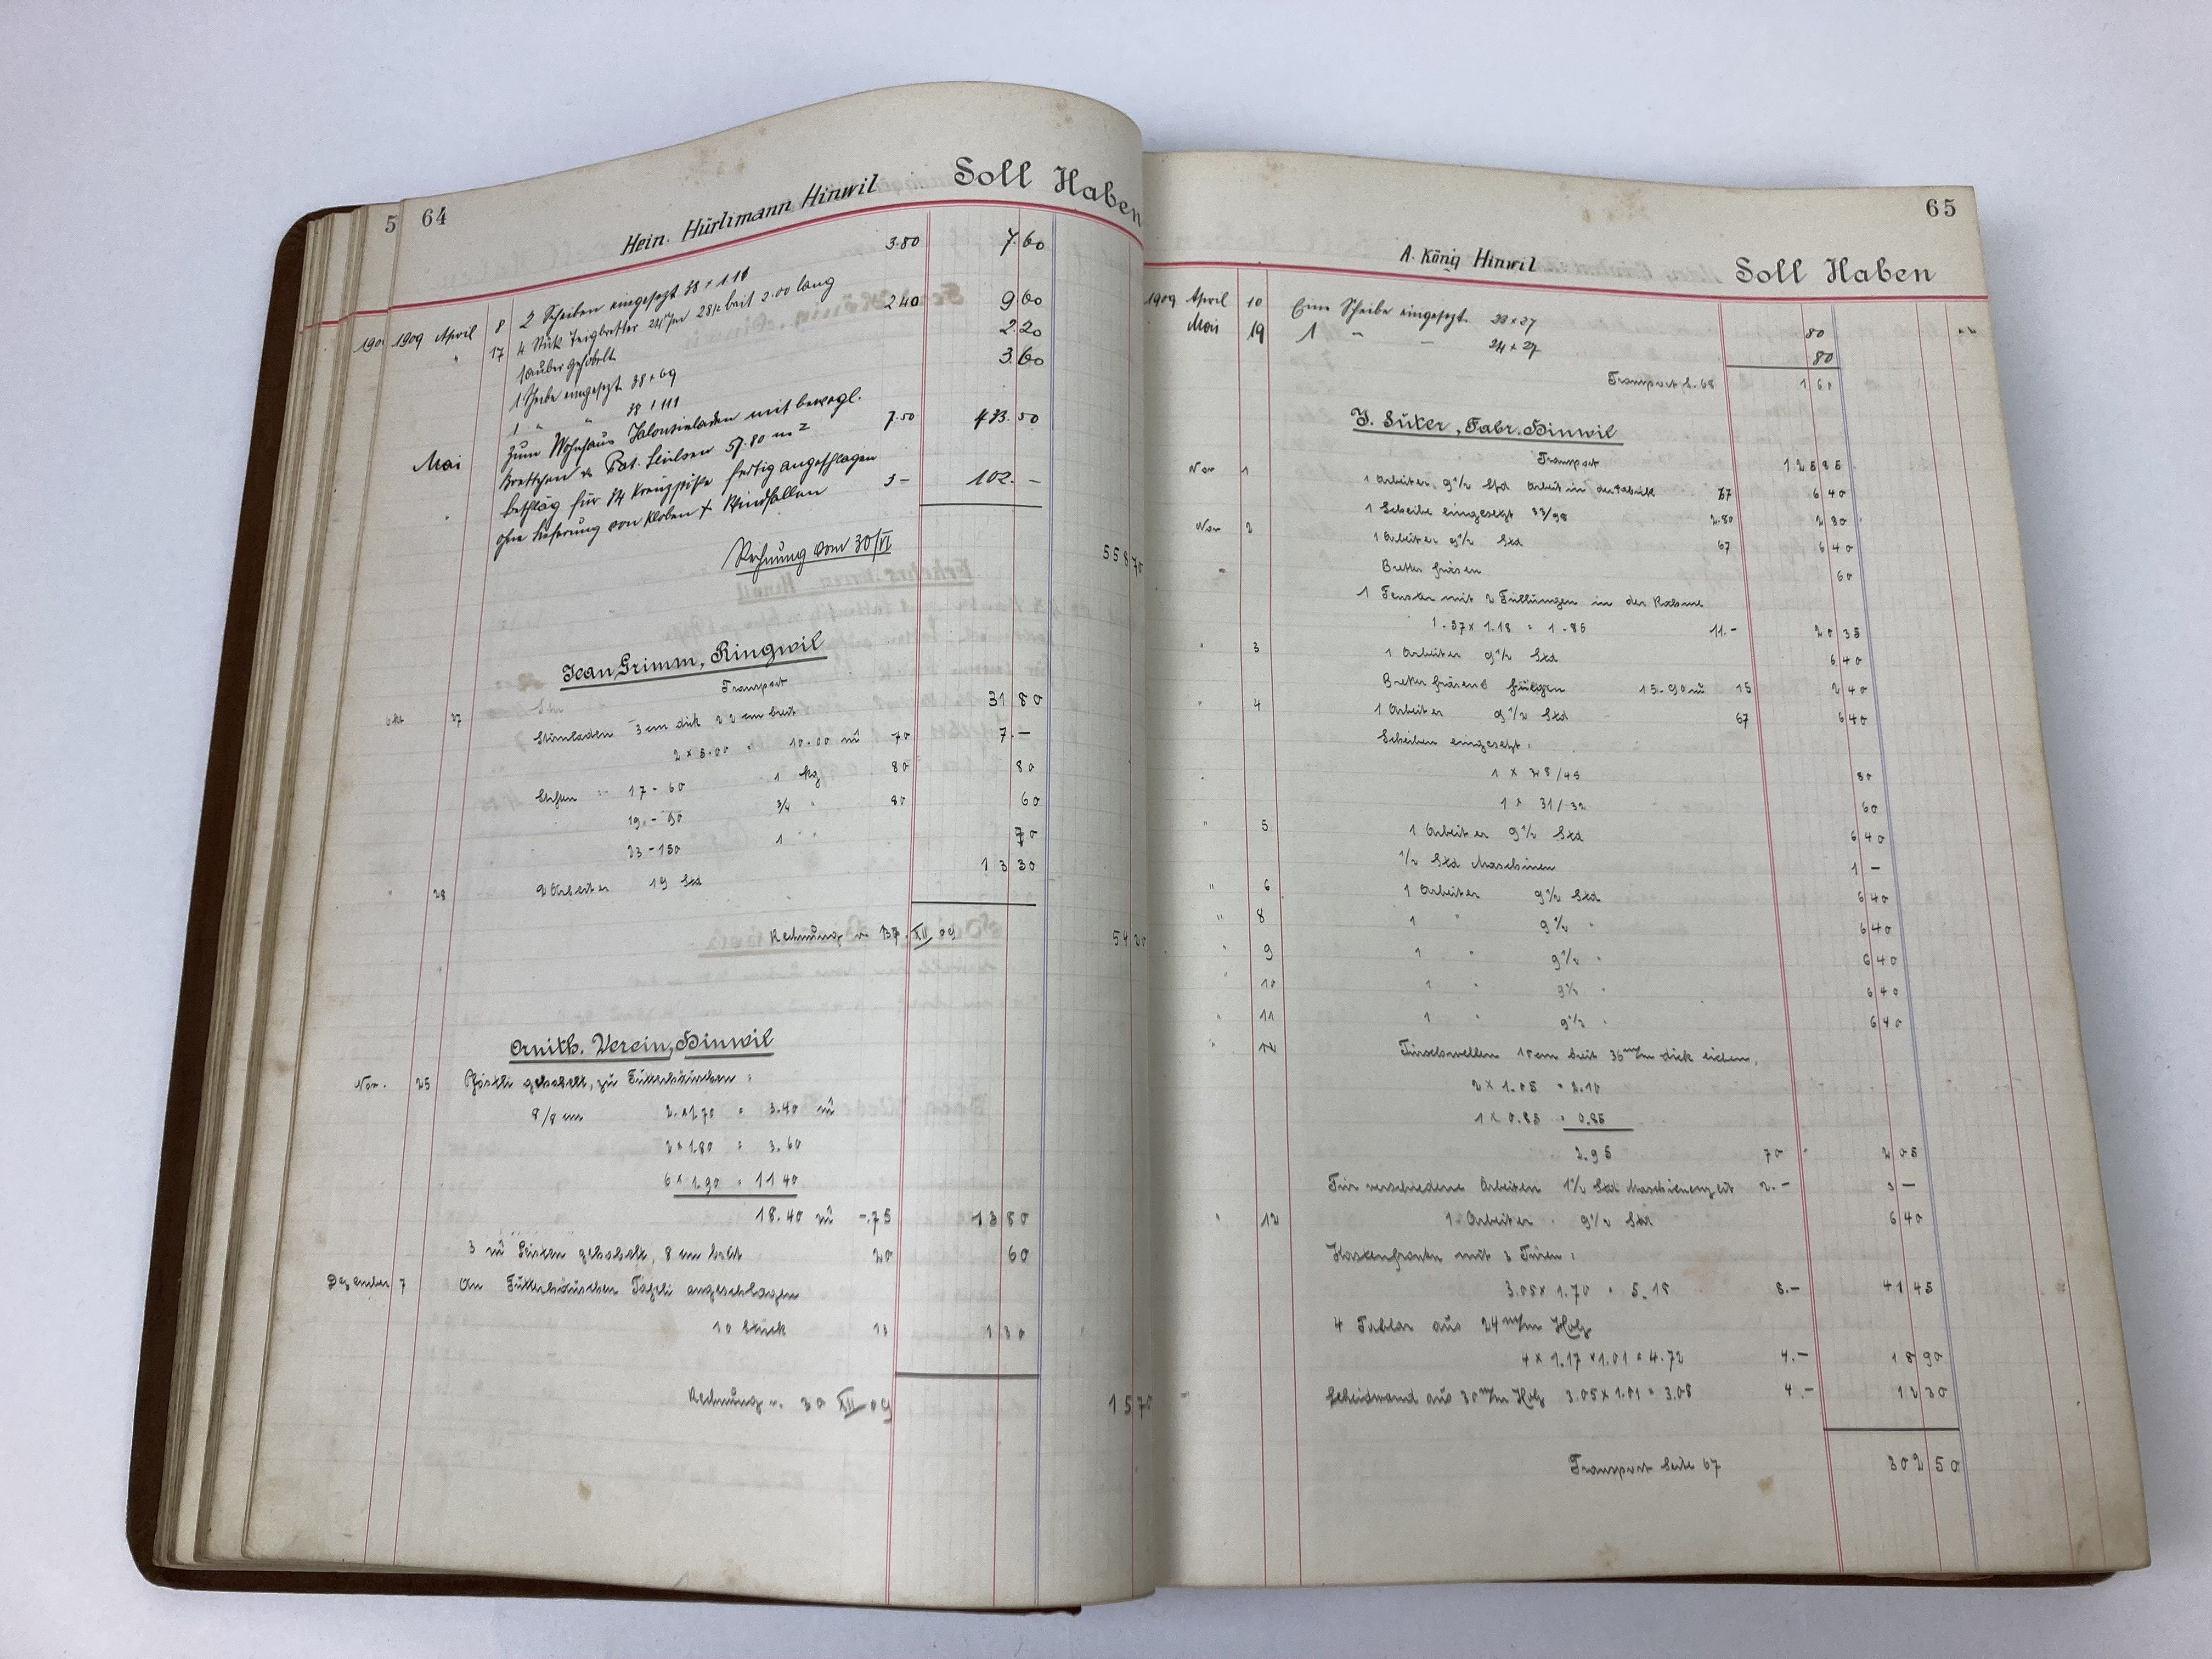 5 64
Hein. Hürlimann Hinwil Soll Haben
1909 April 8 2 Scheiben eingesetzt 38 × 111 3.80 7.60
" 17 4 Stük Teigbretter 24 m/m 28 1/2 breit 2.00 lang 2.40 9.60
sauber gehobelt
1 Scheibe eingesetzt 38 × 69 2.20
1 " " 38 × 111 3.60
Mai Zum Wohnhaus Jalousieladen mit bewegl.
Brettchen & Pat. 57.80 m² 7.50 433.50
Beschläg für 34 Kreuzstöke fertig angeschlagen
ohne Lieferung von Kloben + Windfallen 3 – 102. –
Rechnung vom 30/VI 558 70
Jean Grimm, Ringwil
Transport 31 80
Okt 27 Stirnladen 3 cm dik 22 cm breit
2 × 5.00 = 10.00 m 70 7.–
Stiften 17 – 60 1 kg 80 80
19 – 90 3/4 " 80 60
23 – 150 1 " 70
" 28 2 Arbeiter 19 Std 13 30
Rechnung v. XII 09 54 20
Ornith. Verein, Hinwil
Nov. 25 Pföstli gehobelt, zu Futterhäuschen :
8/8 cm 2 × 1.70 = 3.40 m
2 × 1.80 = 3.60
6 × 1.90 = 11 40
18.40 m –.75 13 80
3 m Leisten gehobelt, 8 cm breit 20 60
Dezember 7 An Futterhäuschen Tafeli angeschlagen
10 Stück 13 1 30
Rechnung v. 30 XII 09 15 70
65
A. König Hinwil Soll Haben
1909 April 10 Eine Scheibe eingesetzt 23 × 27 80
Mai 19 1 – – 24 × 27 80
Transport S. 68 1 60
J. Suter, Fabr. Hinwil
Transport 125 85
Nov 1 1 Arbeiter, 9 1/2 Std Arbeit in der Fabrik 67 6 40
1 Scheibe eingesetzt 33/98 2.80 2 80
Nov 2 1 Arbeiter 9 1/2 Std 67 6 40
" Bretter fräsen 60
1 Fenster mit 2 Füllungen in der Rahme
1.57 × 1.18 = 1.85 11.– 20 35
" 3 1 Arbeiter 9 1/2 Std 6 40
Bretter fräsen & fuegen 15.90 m 15 2 40
" 4 1 Arbeiter 9 1/2 Std 67 6 40
Scheiben eingesetzt :
1 × 38/45 80
1 × 31/32 60
" 5 1 Arbeiter 9 1/2 Std 6 40
1/2 Std Maschinen 1 –
" 6 1 Arbeiter 9 1/2 Std 6 40
" 8 1 " 9 1/2 " 6 40
" 9 1 " 9 1/2 " 6 40
" 10 1 " 9 1/2 " 6 40
" 11 1 " 9 1/2 " 6 40
" 12 Türschwellen 15 cm breit 36 m/m dick eichen,
2 × 1.05 = 2.10
1 × 0.85 = 0.85
2.95 70 2 05
Für verschiedene Arbeiten 1 1/2 Std Maschienenzeit 2.– 3 –
" 12 1 Arbeiter 9 1/2 Std 6 40
Kastenfronten mit 3 Türen :
3.05 × 1.70 = 5.18 8.– 41 45
4 Tablar aus 24 m/m Holz
4 × 1.17 × 1.01 = 4.72 4.– 18 90
Scheidwand aus 30 m/m Holz 3.05 × 1.01 = 3.08 4.– 12 30
Transport Seite 67 302 50